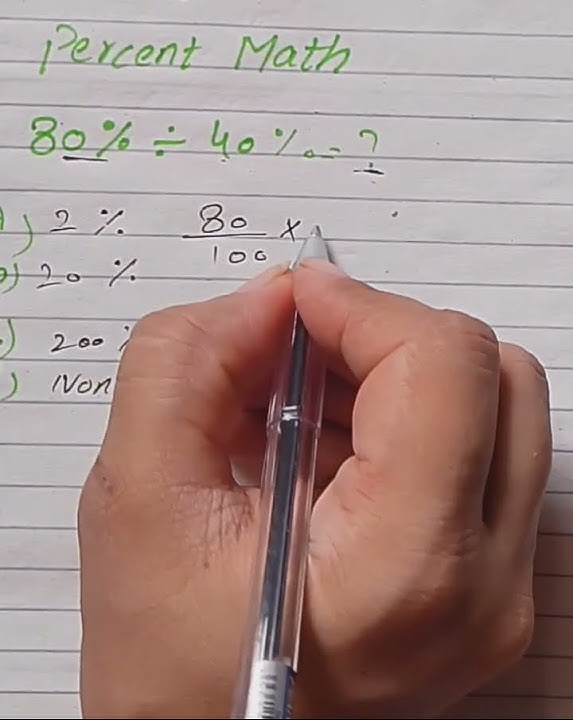 Percent Math
80% ÷ 40% = ?
) 2 %
) 20 %
) 200
) Non
80
100 ×